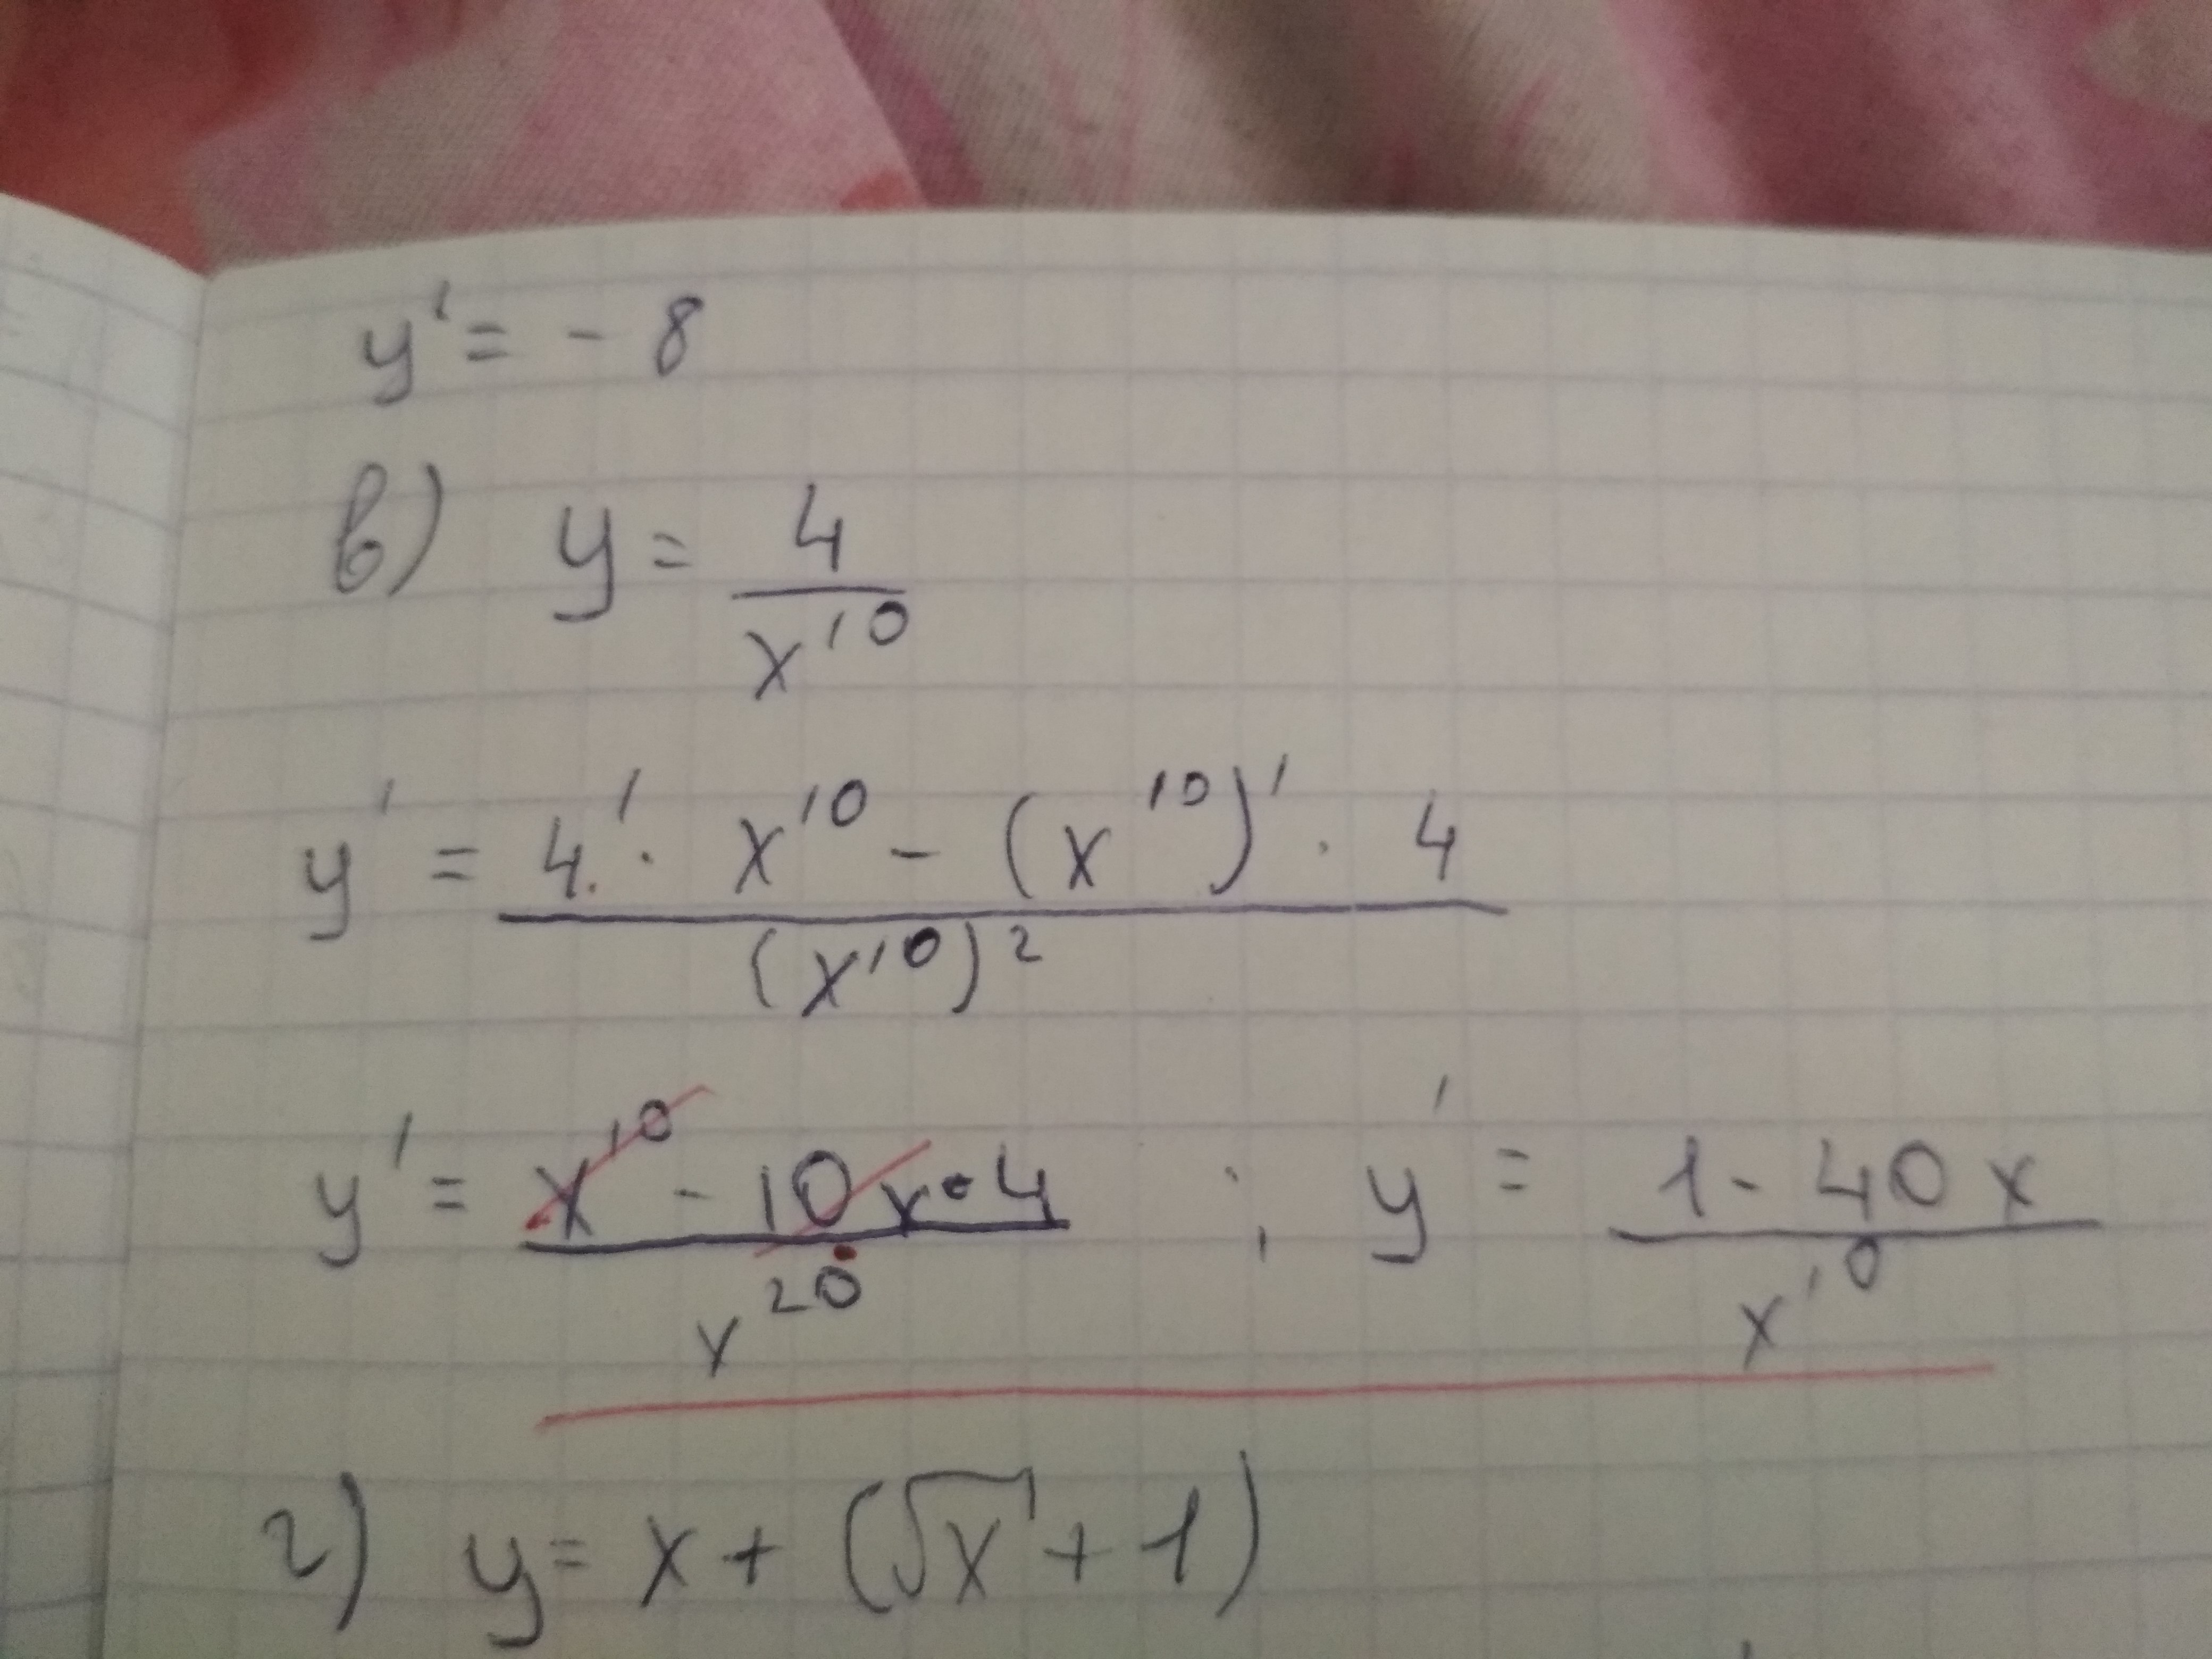 y' = - 8
в) y = 4 / x^10
y' = 4' · x^10 - (x^10)' · 4 / (x^10)^2
y' = x^10 - 10x · 4 / x^20 ; y' = 1 - 40x / x^10
г) y = x + (√x + 1)